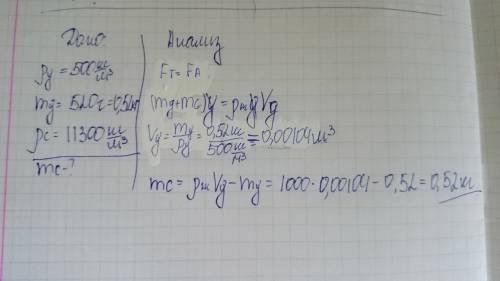 Дано:
ρд = 500 кг/м³
mд = 520г = 0,52кг
ρс = 11300 кг/м³
mс - ?
Анализ
Fт = FА
(mд + mс)g = ρж g Vд
Vд = mд/ρд = 0,52кг/500 кг/м³ = 0,00104 м³
mс = ρж Vд - mд = 1000 · 0,00104 - 0,52 = 0,52кг